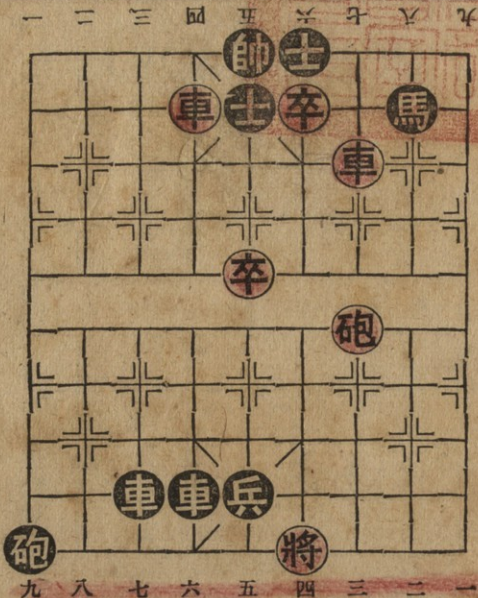 一 二 三 四 五 六 七 八 九
帥 士
車 士 卒 馬
車
卒
砲
車 車 兵
砲 將
九 八 七 六 五 四 三 二 一